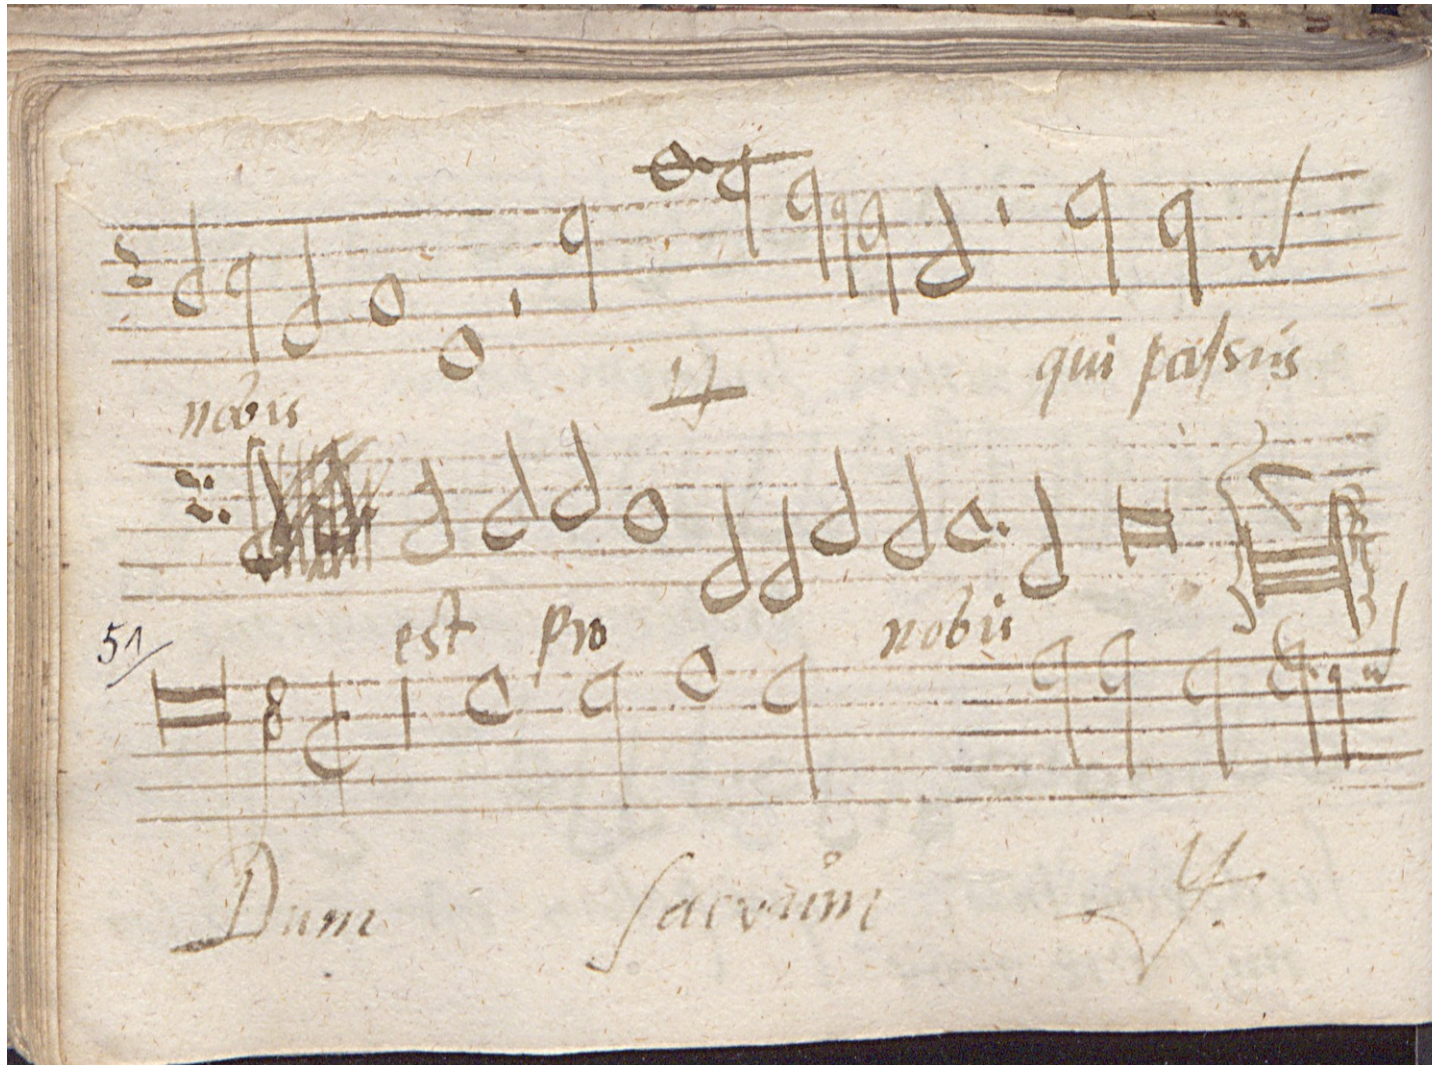 nobis qui passus
est pro nobis
51
Dum sacrum